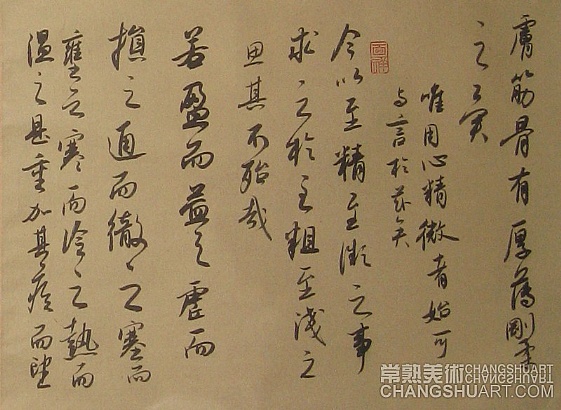 膚筋骨有厚薄剛柔
之異
唯用心精微者始可
与言於茲矣
今以至精至微之事
求之於至粗至淺之
思其不殆哉
若盈而益之虛而
損之通而徹之塞而
壅之寒而冷之熱而
温之是重加其疾而望
常熟美術CHANGSHUART
CHANGSHUART.COM